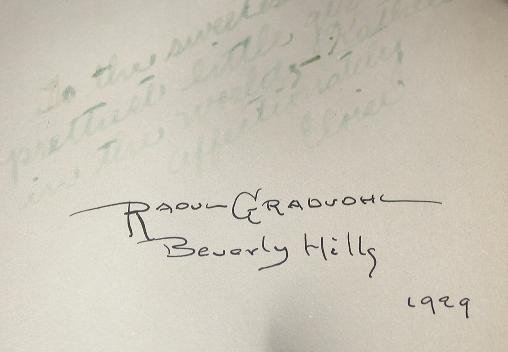 To the sweetest
prettiest little girl
in the world - Kathleen
affectionately
Eloise
Raoul Gradvohl
Beverly Hills
1929